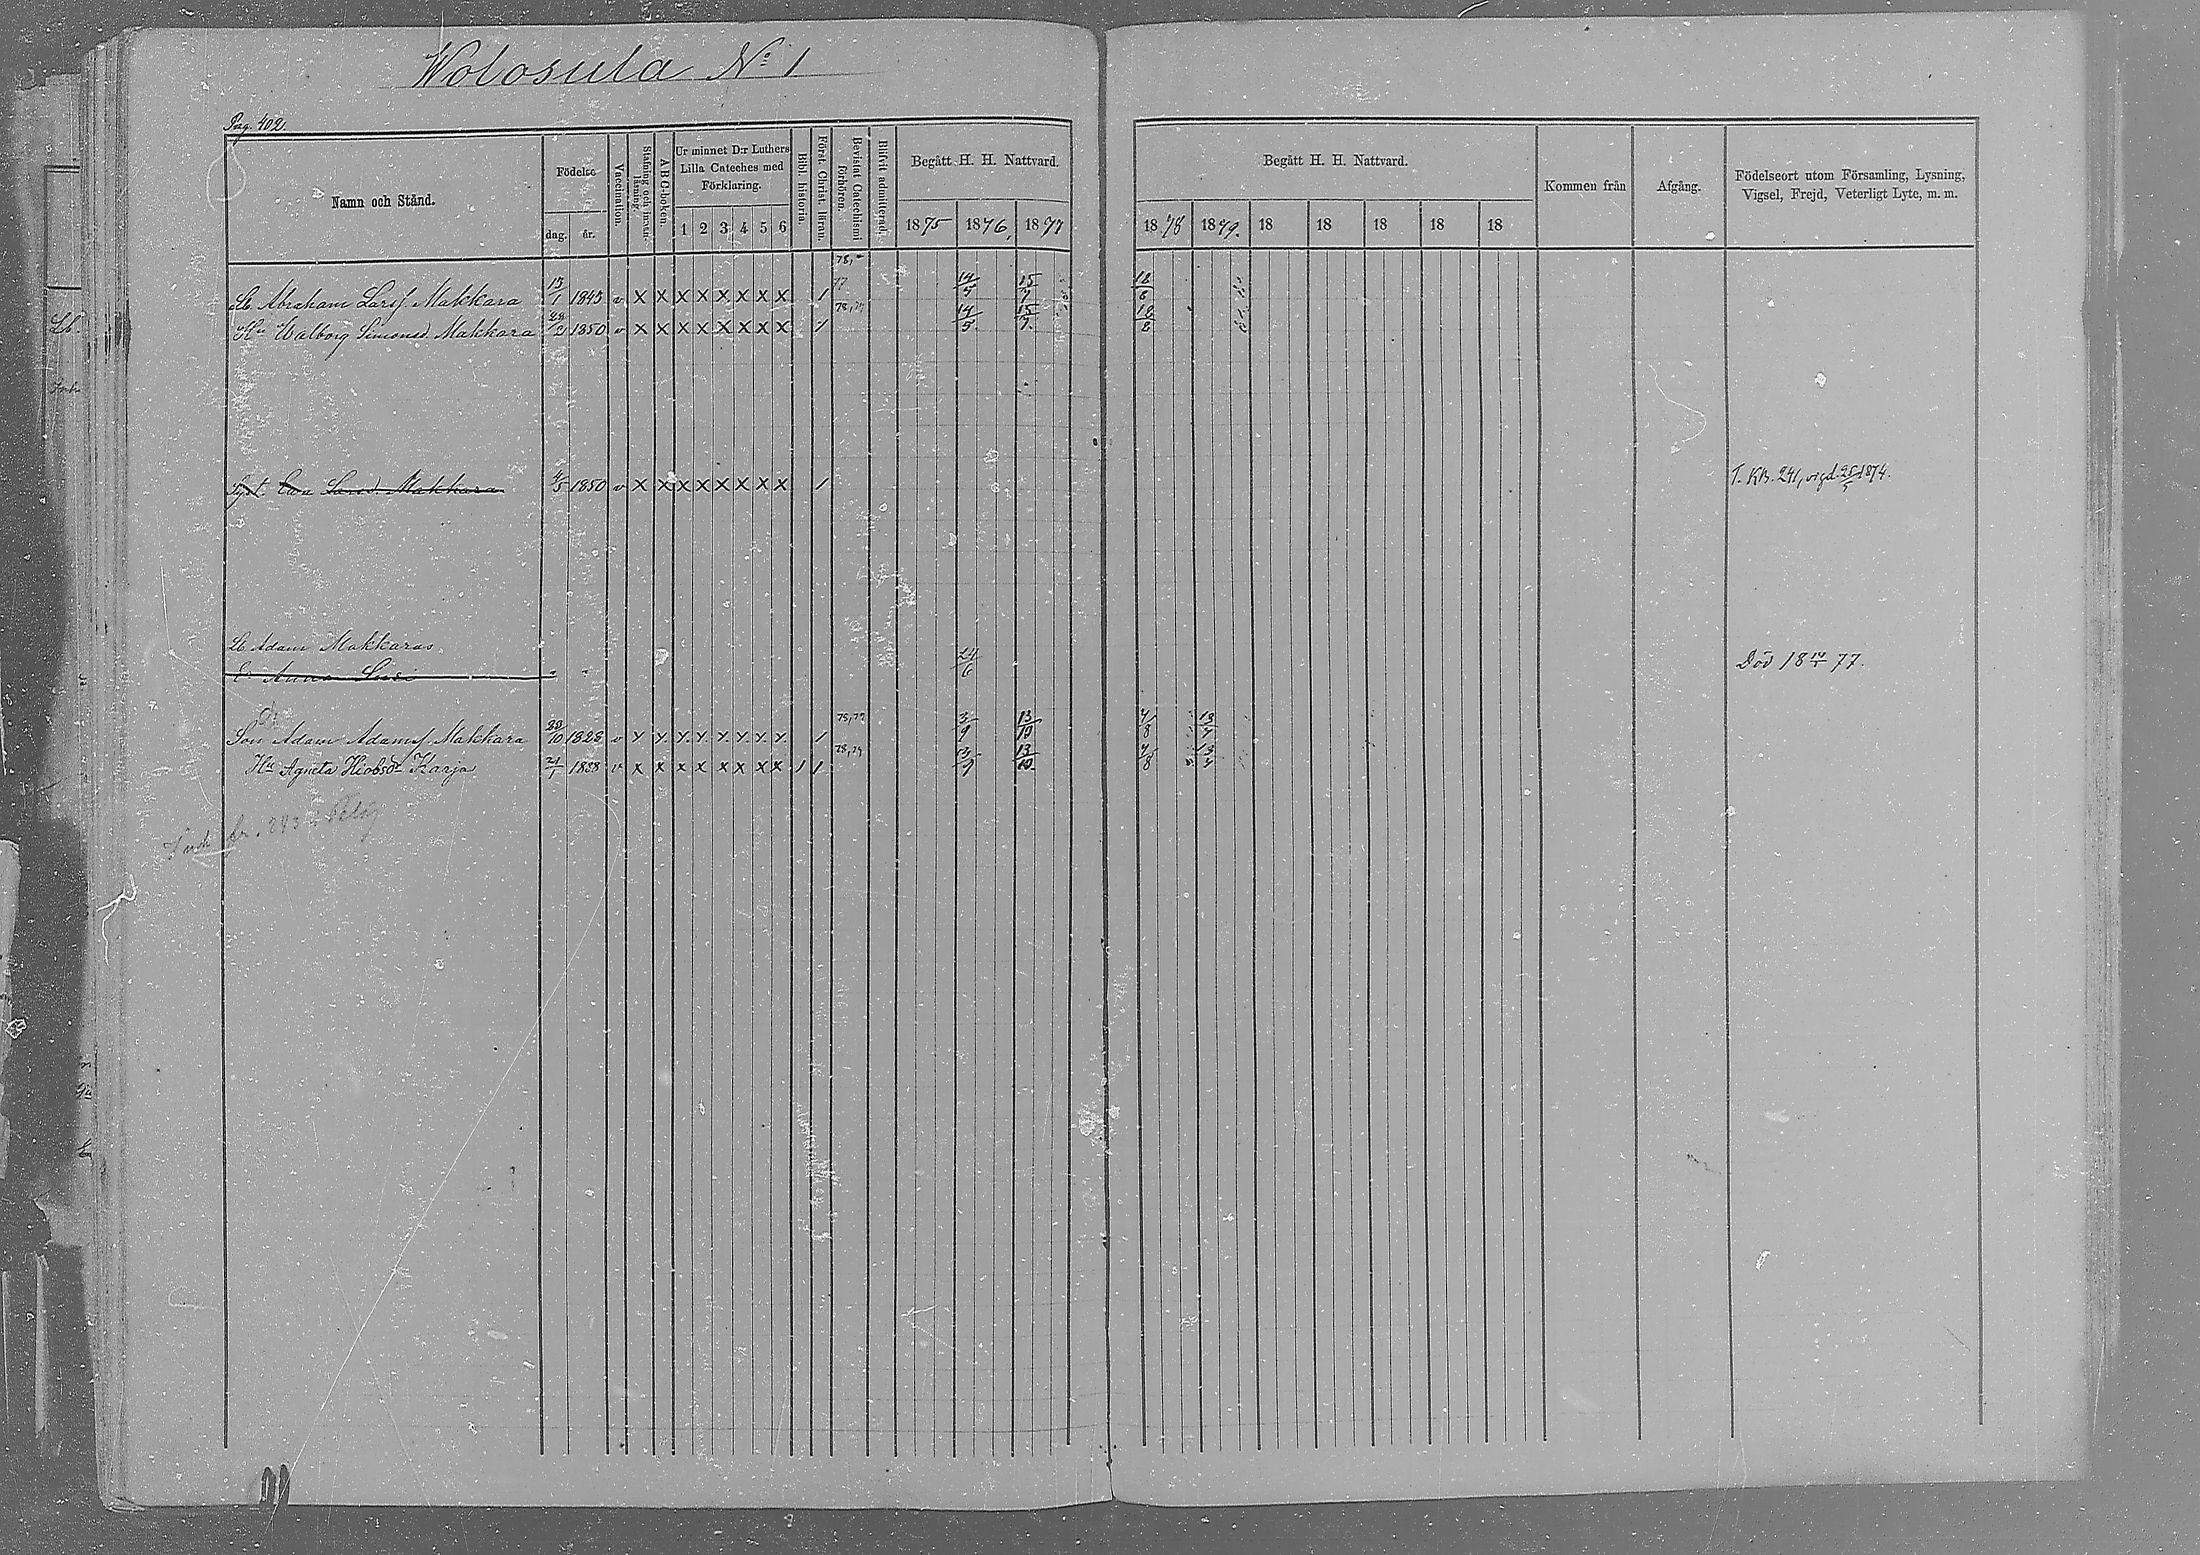 Wolosula No 1
Pag. 402.
Namn och Stånd.
Födelse
dag. år.
Vaccination.
Stafning och innanläsning.
ABC-boken.
Ur minnet D:r Luthers Lilla Cateches med Förklaring.
1 2 3 4 5 6
Bibl. historia.
Först. Christ. läran.
Bevistat Catechismi förhören.
Blifvit admitterad.
Begått H. H. Nattvard.
1875 1876. 1877
Begått H. H. Nattvard.
1878 1879. 18 18 18 18 18
Kommen från
Afgång.
Födelseort utom Församling, Lysning, Vigsel, Frejd, Veterligt Lyte, m. m.
Abraham Larsf. Makkara 15/1 1845 v x x x x x x x x 1 77 14/5 15/7 18/8
Hu Walborg Simonsd. Makkara 1850 v x x x x x x x x 1 78,79 14/5 15/7 18/8
Syst. Eva Larsd. Makkara 4/5 1850 v x x x x x x x x 1 T. KB. 241, vigd 25/5 1874.
Adam Makkaras
E. Anna Susi - - 24/6 Död 18 77.
Son Adam Adamsf. Makkara 29/10 1828 v x x x x x x x x 1 78,79 3/9 13/10 4/8 13/7
Hu Agneta Hiobsdr Karja 21/1 1838 v x x x x x x x x 1 1 78,79 3/9 13/10 4/8 13/7